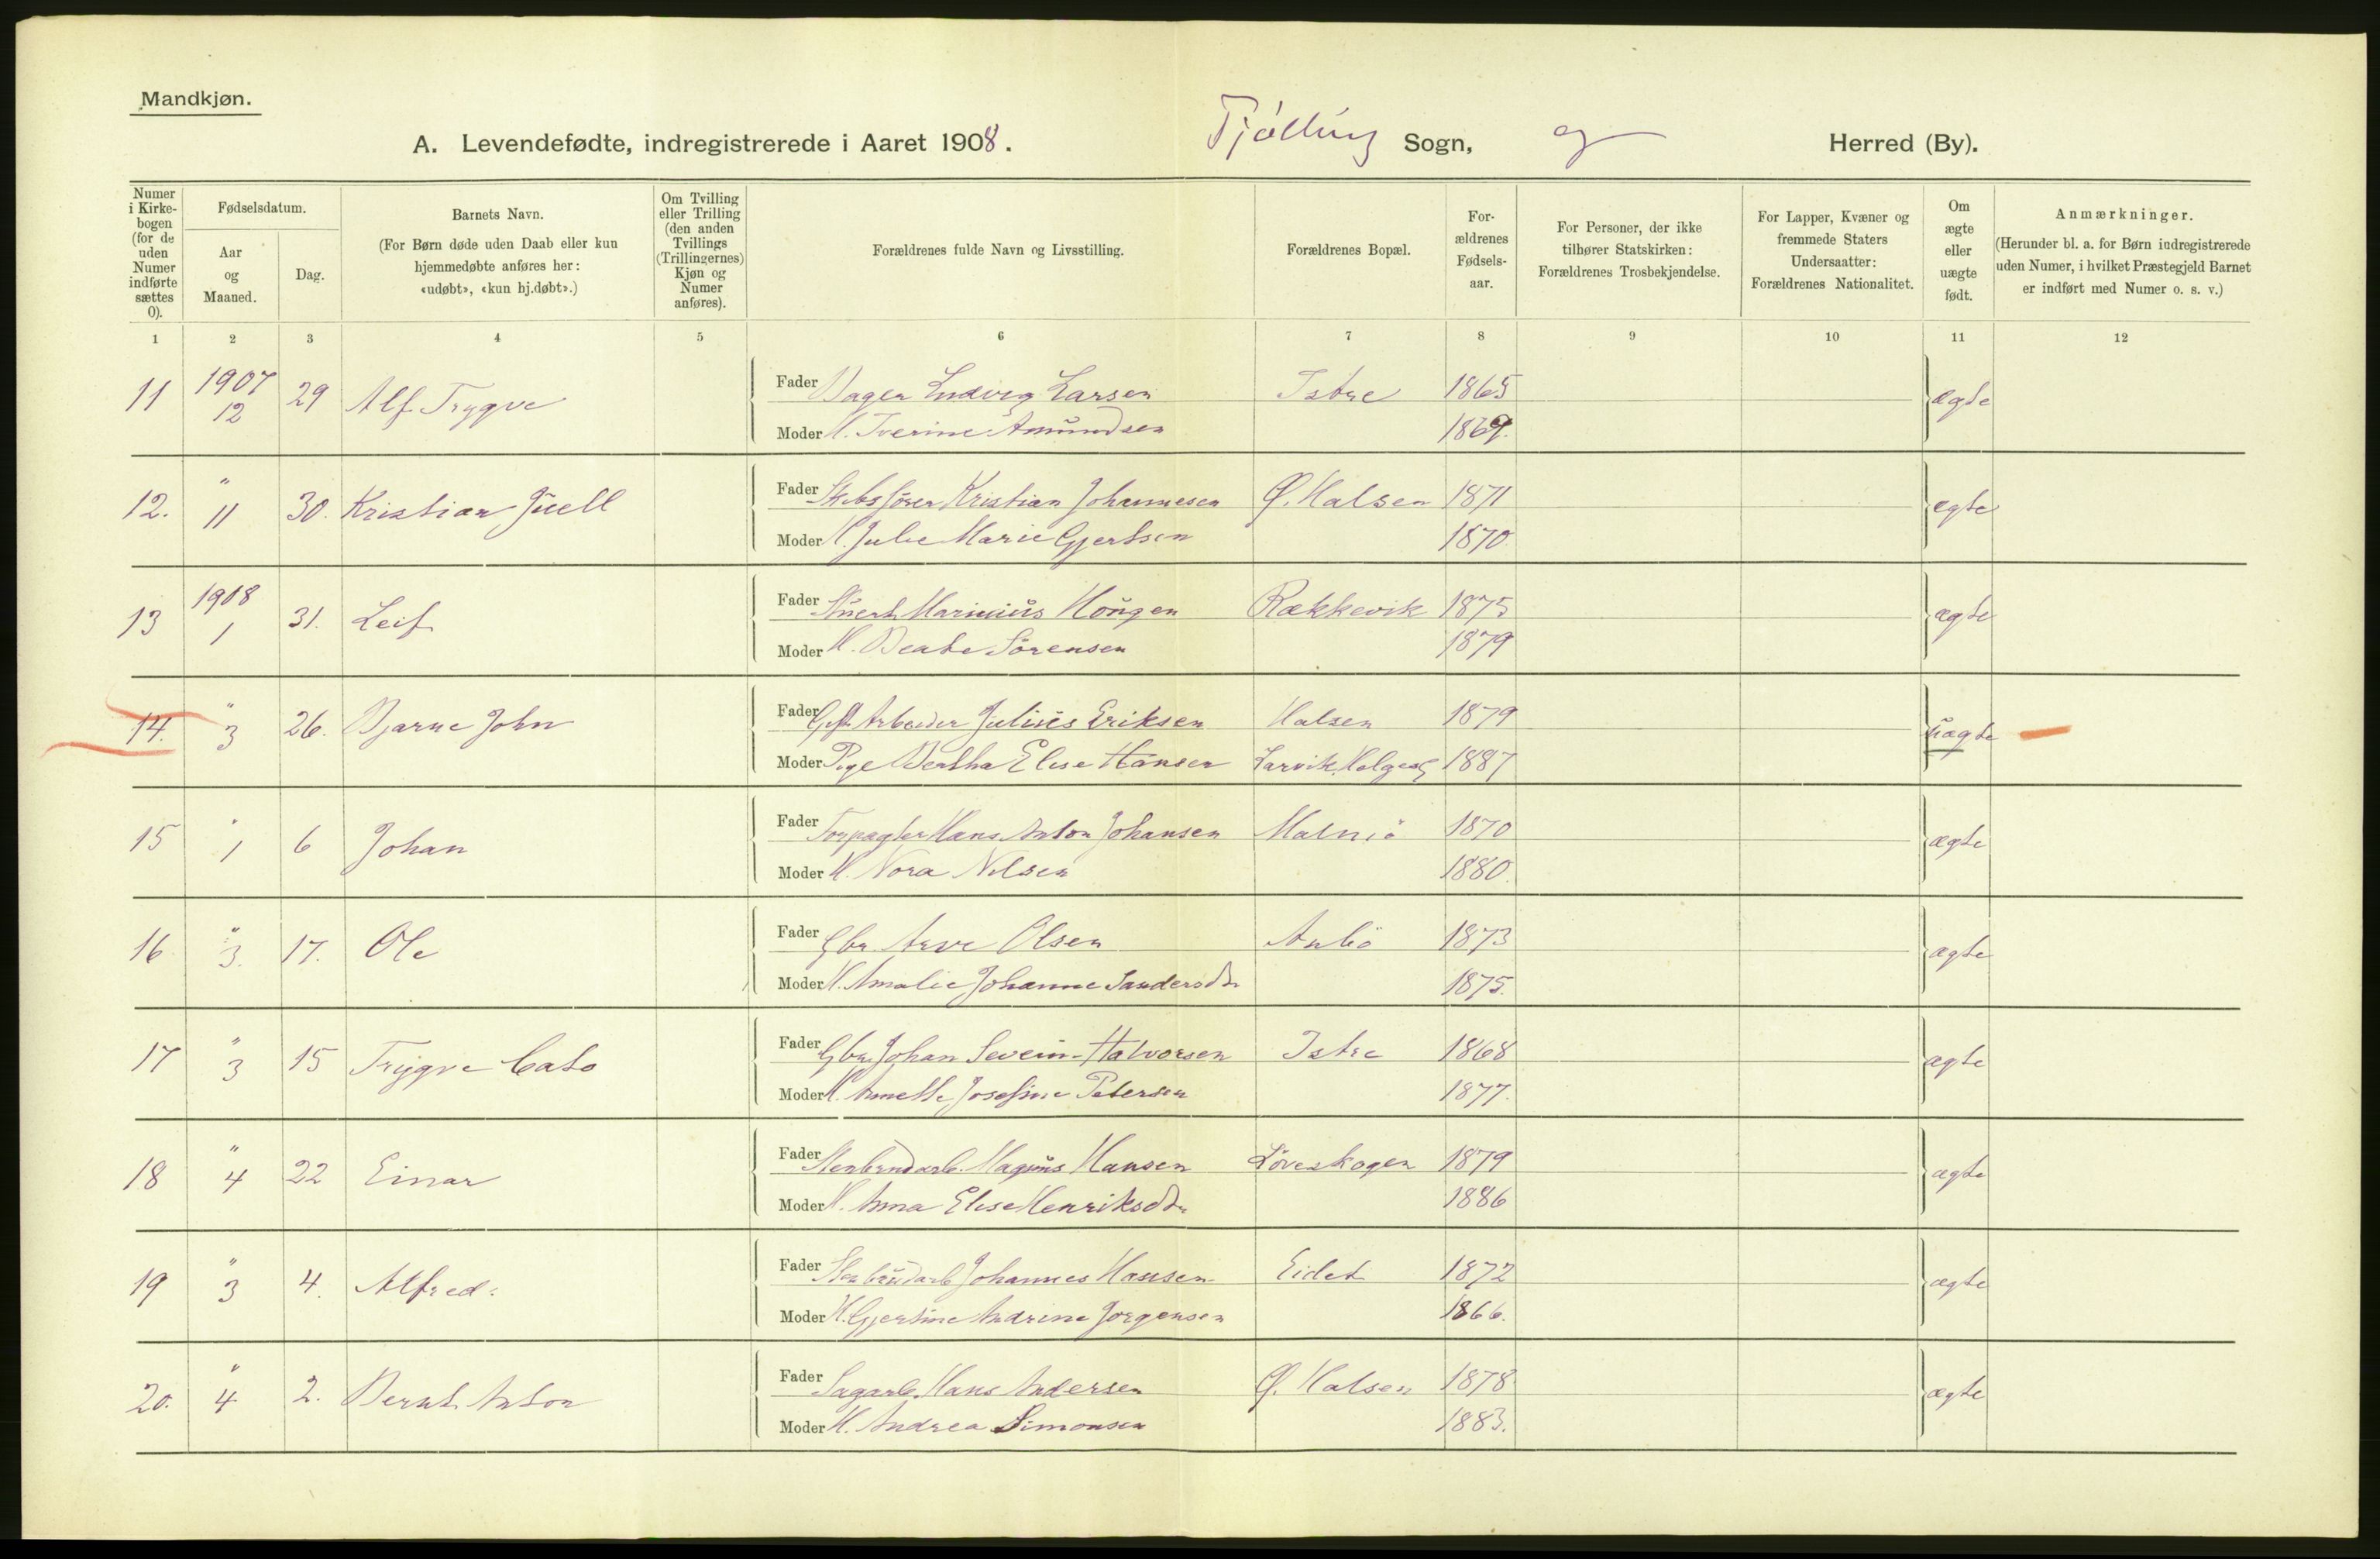 Mandkjøn.
A. Levendefødte, indregistrerede i Aaret 1908. Tjølling Sogn, og Herred (By).
Numer i Kirkebogen (for de uden Numer indførte sættes 0).
Fødselsdatum.
Aar og Maaned.
Dag.
Barnets Navn.
(For Børn døde uden Daab eller kun hjemmedøbte anføres her: «udøbt», «kun hj.døbt».)
Om Tvilling eller Trilling (den anden Tvillings (Trillingernes) Kjøn og Numer anføres).
Forældrenes fulde Navn og Livsstilling.
Forældrenes Bopæl.
Forældrenes Fødselsaar.
For Personer, der ikke tilhører Statskirken: Forældrenes Trosbekjendelse.
For Lapper, Kvæner og fremmede Staters Undersaatter: Forældrenes Nationalitet.
Om ægte eller uægte født.
Anmærkninger.
(Herunder bl. a. for Børn indregistrerede uden Numer, i hvilket Præstegjeld Barnet er indført med Numer o. s. v.)
1 2 3 4 5 6 7 8 9 10 11 12
11 1907 12 29 Alf Trygve Fader Bager Ludvig Larsen Istre 1865 ægte
Moder H. Iverine Amundsen 1869.
12. " 11 30. Kristian Juell Fader Skibsfører Kristian Johannesen Ø. Halsen 1871 ægte
Moder H. Julie Marie Gjertsen 1870
13 1908 1 31. Leif Fader Marinius Hougen Rækkevik 1875 ægte
Moder H. Beate Sørensen 1879
14. " 3 26. Bjarne John Fader Gift Arbeider Julius Eriksen Halsen 1879 uægte
Moder Pige Bertha Elise Hansen Larvik, Helgesg 1887
15 " 1 6 Johan Fader Forpagter Hans Anton Johansen Malmø 1870 ægte
Moder H. Nora Nilsen 1880.
16 " 3. 17. Ole Fader Gbr. Arve Olsen Aubø 1873 ægte
Moder H. Amalie Johanne Sandersdr 1875.
17 " 3 15 Trygve Cato Fader Gbr. Johan Severin Halvorsen Istre 1868 ægte
Moder H. Annette Josefine Petersen 1877.
18 " 4 22 Einar Fader Stenbrudarb. Magnus Hansen Løveskogen 1879 ægte
Moder H. Anna Elise Henriksdr 1886
19 " 3 4. Alfred. Fader Stenbrudarb Johannes Hansen Eidet 1872 ægte
Moder H. Gjertine Andrine Jørgensen 1866.
20. " 4 2. Bernt Anton Fader Sagarb. Hans Andersen Ø. Halsen 1878 ægte
Moder H. Andrea Simonsen 1883.